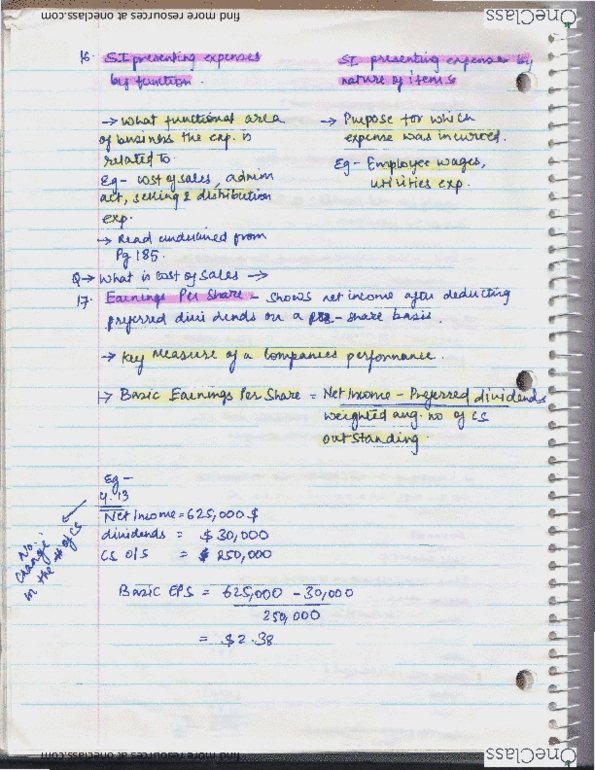 find more resources at oneclass.com
OneClass
16. S.I presenting expenses
by function.
→ What functional area
of business the exp. is
related to
Eg- cost of sales, admin
act, selling & distribution
exp.
→ Read underlined from
Pg 185.
SI. presenting expenses by
nature of items
→ Purpose for which
expense was incurred.
Eg- Employee wages,
utilities exp.
Q→ What is cost of sales →
17. Earnings Per Share - Shows net income after deducting
preferred dividends on a per-share basis.
→ Key Measure of a companies performance.
→ Basic Earnings Per Share = Net Income - Preferred dividends
weighted avg. no of CS
outstanding.
Eg-
4.13
Net Income = 625,000 $
dividends = $ 30,000
CS O/S = $ 250,000
No
change
in the # of CS
Basic EPS = 625,000 - 30,000
250,000
= $2.38
find more resources at oneclass.com
OneClass